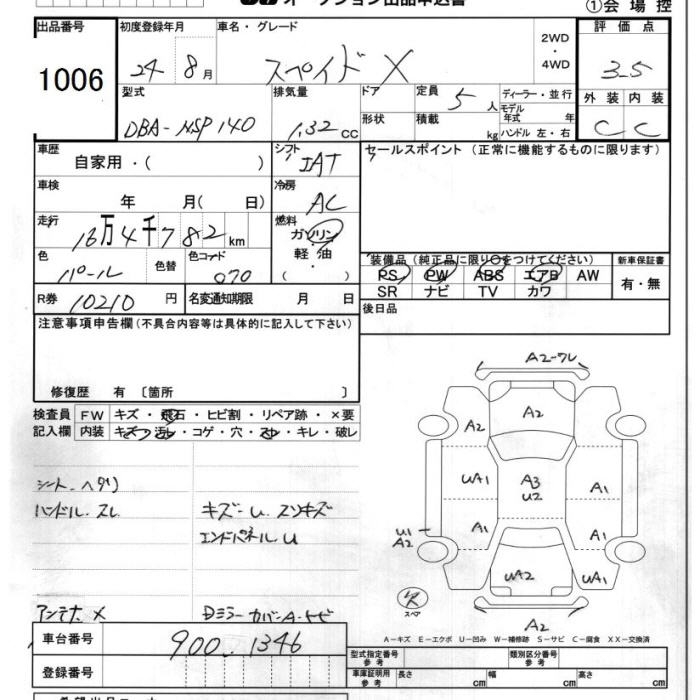 オークション出品申込書
①会場控
出品番号 1006
初度登録年月 24年 8月
車名・グレード スペイド X
2WD・4WD
評価点 3.5
外装 C 内装 C
型式 DBA-NSP140
排気量 1.32 cc
ドア 形状
定員 5人 積載 kg
ディーラー・並行
モデル年式 年
ハンドル 左・右
車歴 自家用・( )
シフト IAT
セールスポイント(正常に機能するものに限ります)
車検 年 月( 日)
冷房 AC
走行 16万4千782km
燃料 ガソリン 軽油・( )
色 パール 色替 色コード 070
装備品(純正品に限り○をつけてください)
新車保証書
PS PW ABS エアB AW
SR ナビ TV カワ
有・無
R券 10210円
名変通知期限 月 日
後日品
注意事項申告欄(不具合内容等は具体的に記入して下さい)
修復歴 有〔箇所 〕
検査員記入欄
FW キズ・飛石・ヒビ割・リペア跡・×要
内装 キズ・汚れ・コゲ・穴・スレ・キレ・破レ
シート ヘタリ
ハンドル スレ
キズ-U.スリキズ
エンドパネルU
アンテナ X
Dミラーカバー A.トビ
A2-ワレ
A2
A2
UA1
A3
U2
A1
A1
A1
U1
A2
UA2
UA1
スペア
A2
A-キズ E-エクボ U-凹み W-補修跡 S-サビ C-腐食 XX-交換済
車台番号 900..1346
登録番号
型式指定番号 参考
類別区分番号 参考
車庫証明用 参考 長さ cm 幅 cm 高さ cm